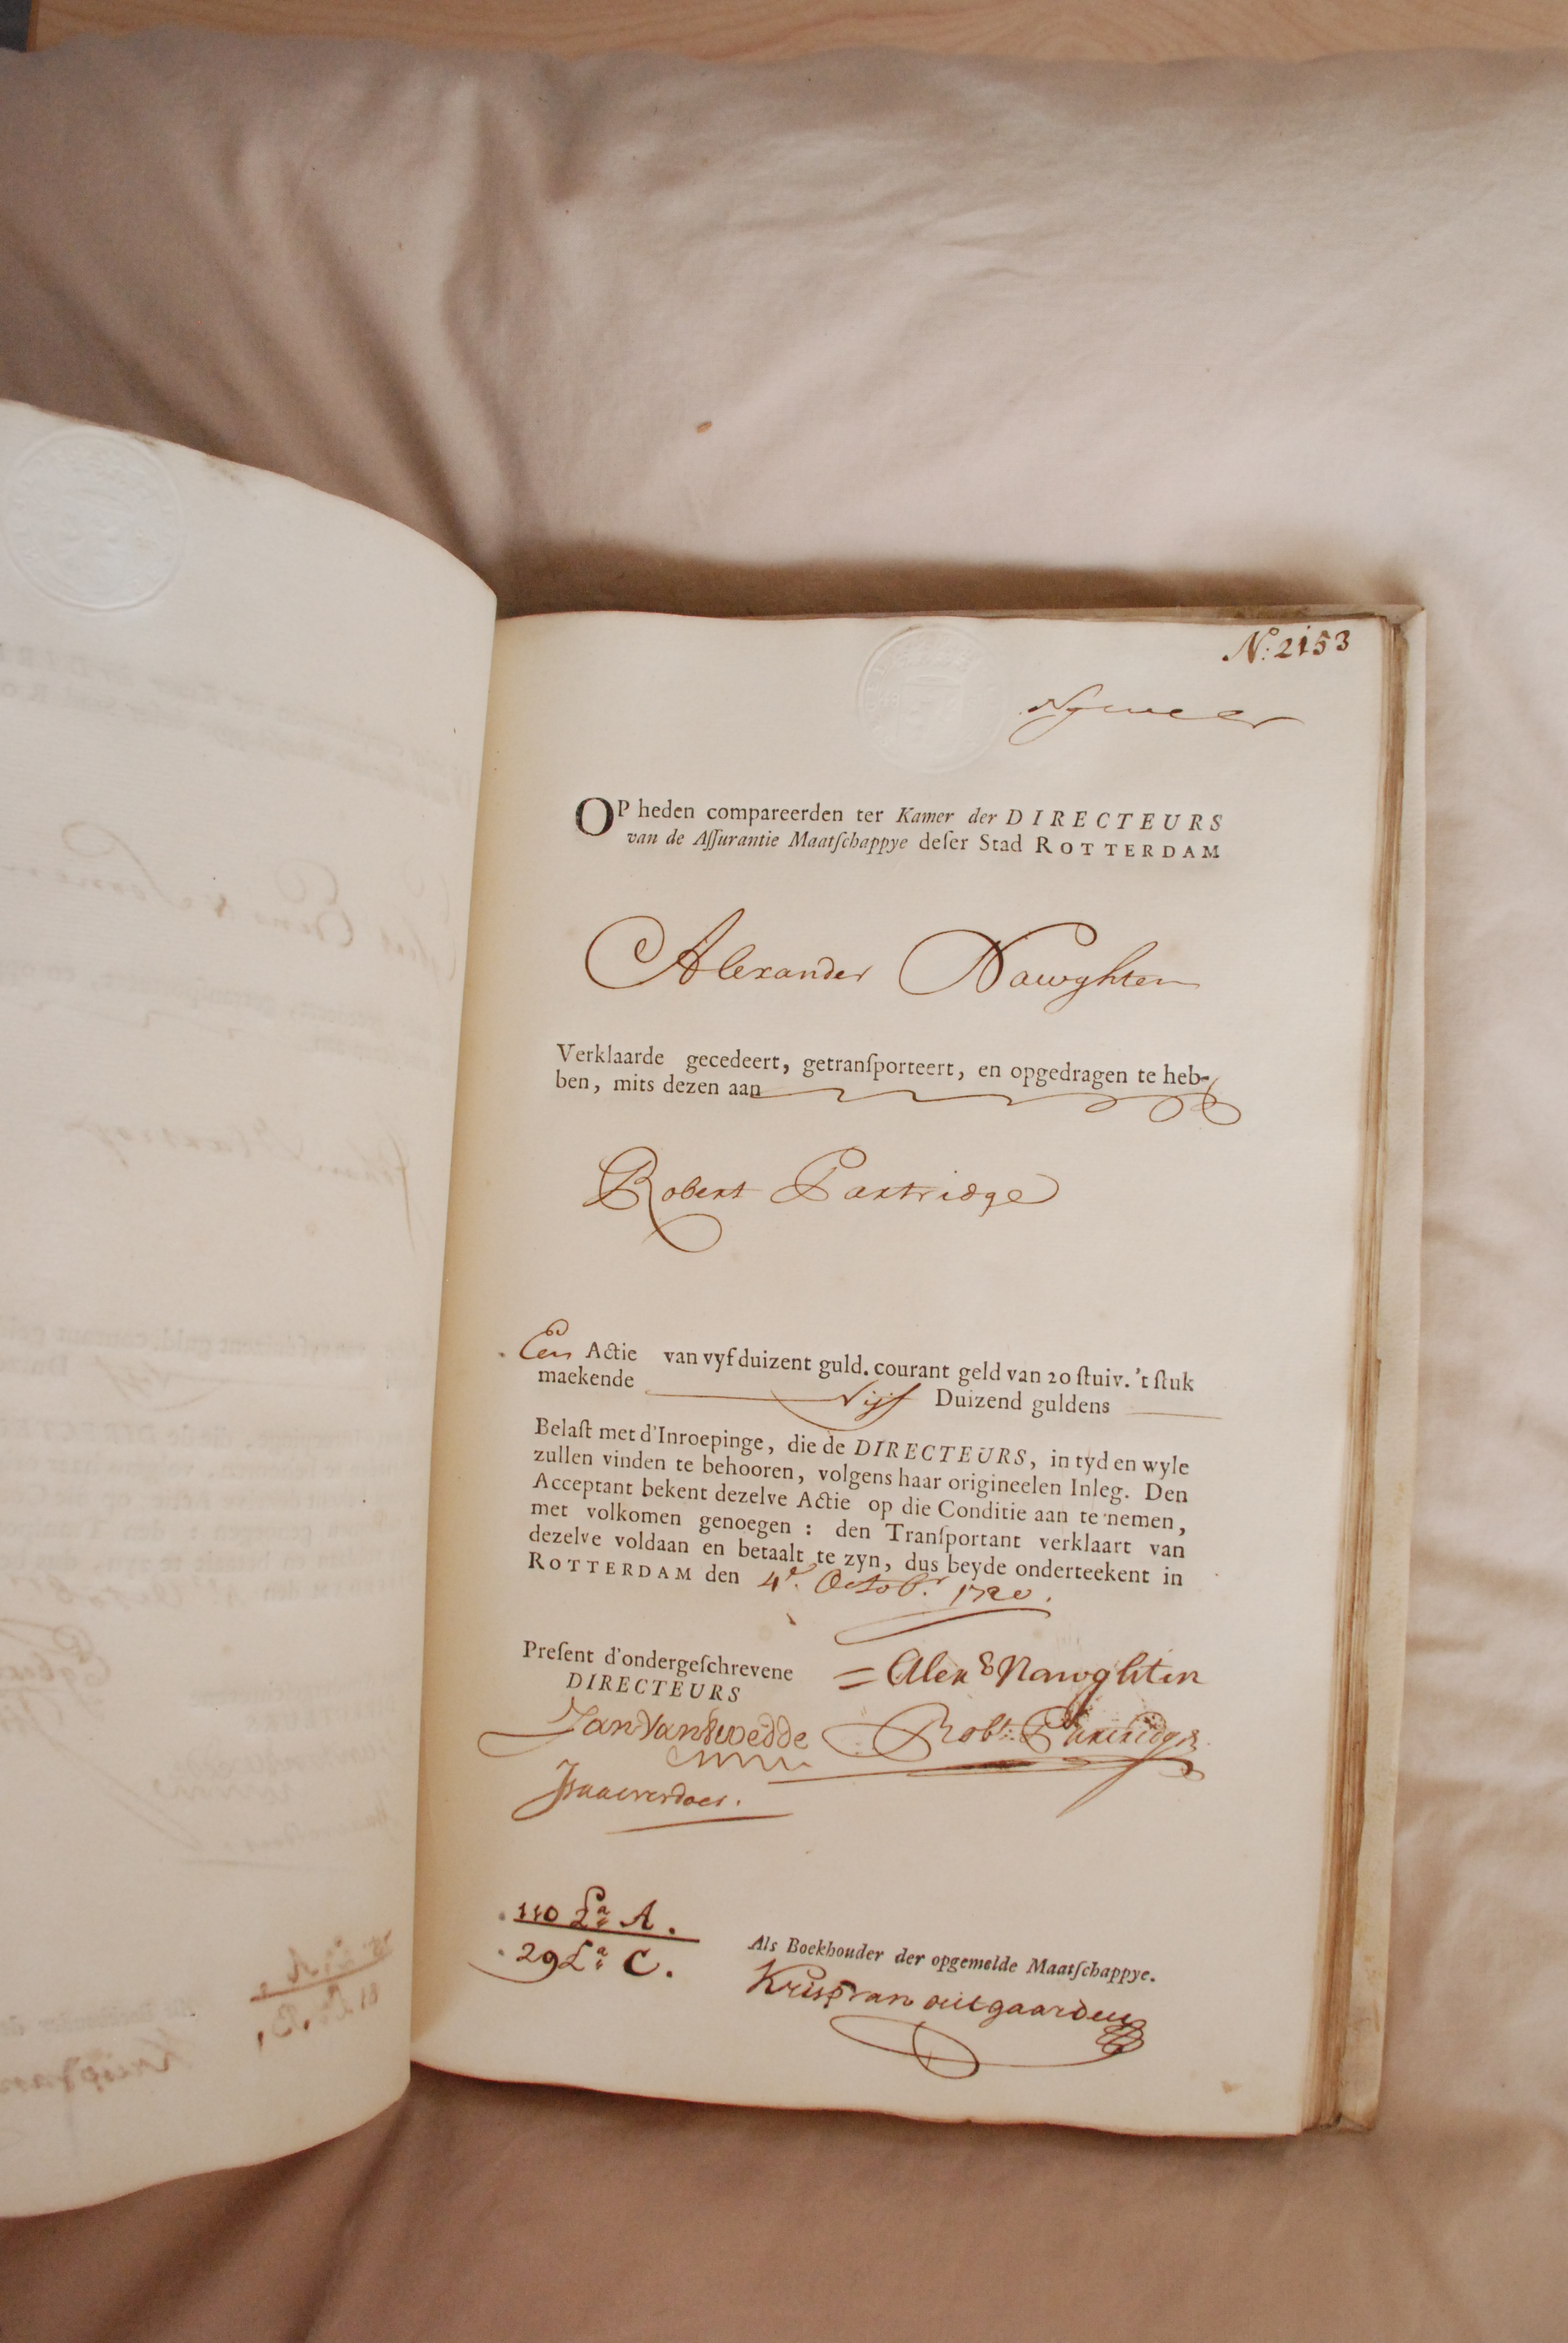 N:o 2153
OP heden compareerden ter Kamer der DIRECTEURS
van de Aſſurantie Maatſchappye deſer Stad ROTTERDAM
Alexander Nawghten
Verklaarde gecedeert, getranſporteert, en opgedragen te heb-
ben, mits dezen aan
Robert Partridge
Een Actie van vyf duizent guld. courant geld van 20 ſtuiv. 't ſtuk
maekende Vijf Duizend guldens
Belaſt met d'Inroepinge, die de DIRECTEURS, in tyd en wyle
zullen vinden te behooren, volgens haar origineelen Inleg. Den
Acceptant bekent dezelve Actie op die Conditie aan te nemen,
met volkomen genoegen : den Tranſportant verklaart van
dezelve voldaan en betaalt te zyn, dus beyde onderteekent in
ROTTERDAM den 4e. Octobr. 1720.
Preſent d'ondergeſchrevene
DIRECTEURS
= Alexr Nawghten
Jan Van
Robt: Partridge
110 La A.
29 La C.
Als Boekhouder der opgemelde Maatſchappye.
Krisp van outgaarden